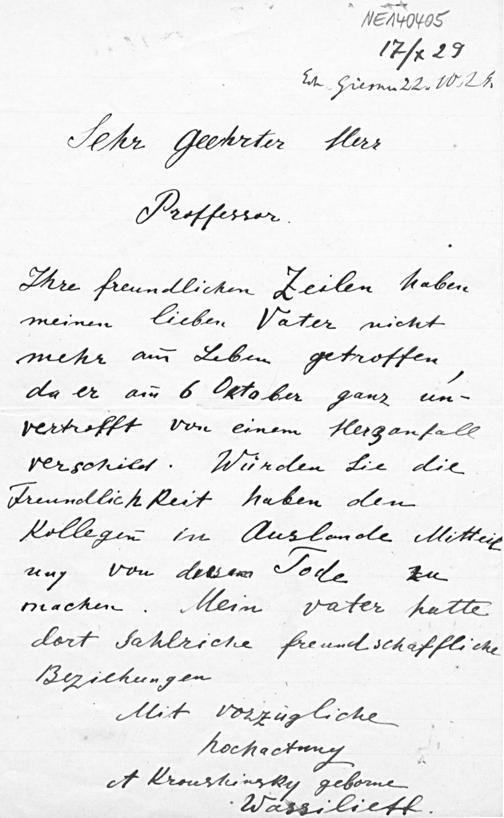 NE140405
17/X 29
22.10.29.
Sehr geehrter Herr
Proffessor.
Ihre freundlichen Zeilen haben
meinen lieben Vater nicht
mehr am Leben getroffen,
da er am 6 Oktober ganz un-
vertrofft von einem Herzanfall
verschied. Würden Sie die
Freundlichkeit haben den
Kollegen in Auslande Mitteil
ung von dessem Tode zu
machen. Mein vater hatte
dort Sahlriche freundschaffliche
Beziehungen
Mit vorzügliche
hochactung
A Krouskinsky geborne
Wassilieff.